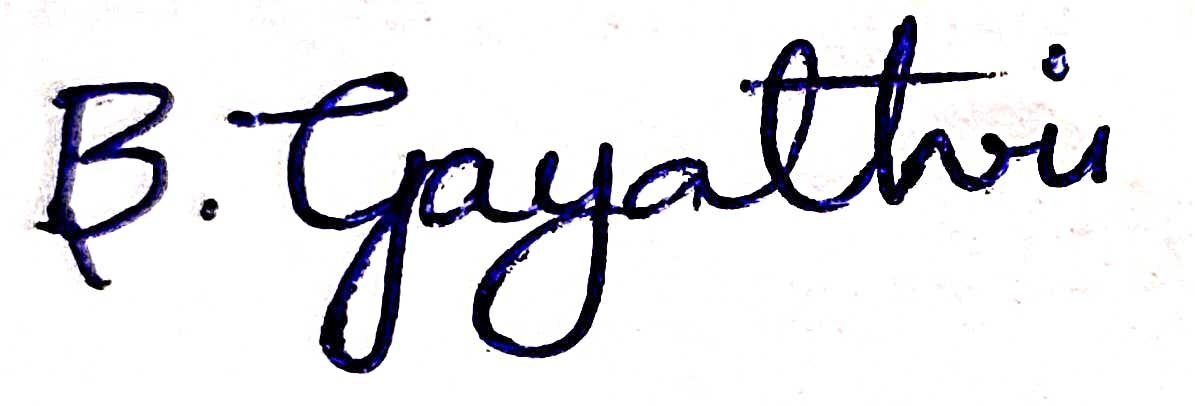 B. Gayathri